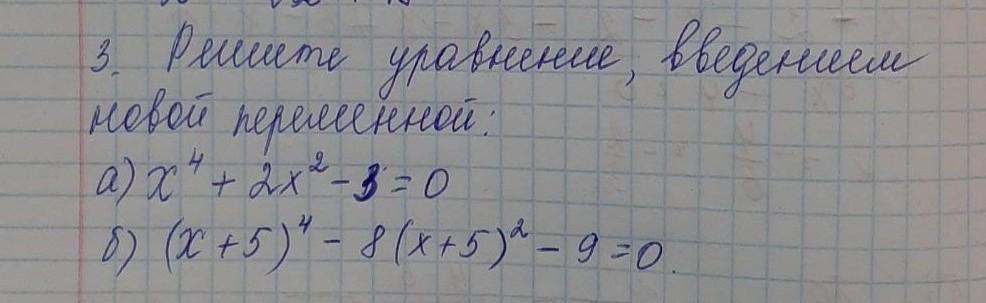 3. Решите уравнение, введением
новой переменной:
а) x⁴ + 2x² - 3 = 0
б) (x + 5)⁴ - 8(x+5)² - 9 = 0.